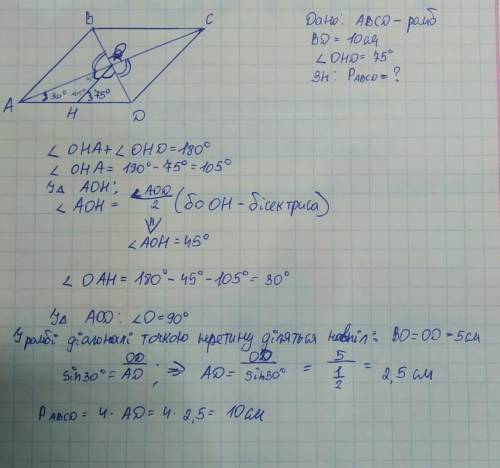 B
C
A
H
D
O
30°
75°
Дано: ABCD - ромб
BD = 10 см
∠OHD = 75°
Зн: PABCD = ?
∠OHA + ∠OHD = 180°
∠OHA = 190° - 75° = 105°
У△ AOH:
∠AOH = ∠AOD/2 (бо OH - бісектриса)
⇓
∠AOH = 45°
∠OAH = 180° - 45° - 105° = 30°
У△ AOD: ∠O = 90°
У ромбі діагоналі точкою перетину діляться навпіл: BO = OD = 5 см
sin30° = OD/AD ; ⇒ AD = OD/sin30° = 5/(1/2) = 2,5 см
PABCD = 4 · AD = 4 · 2,5 = 10 см